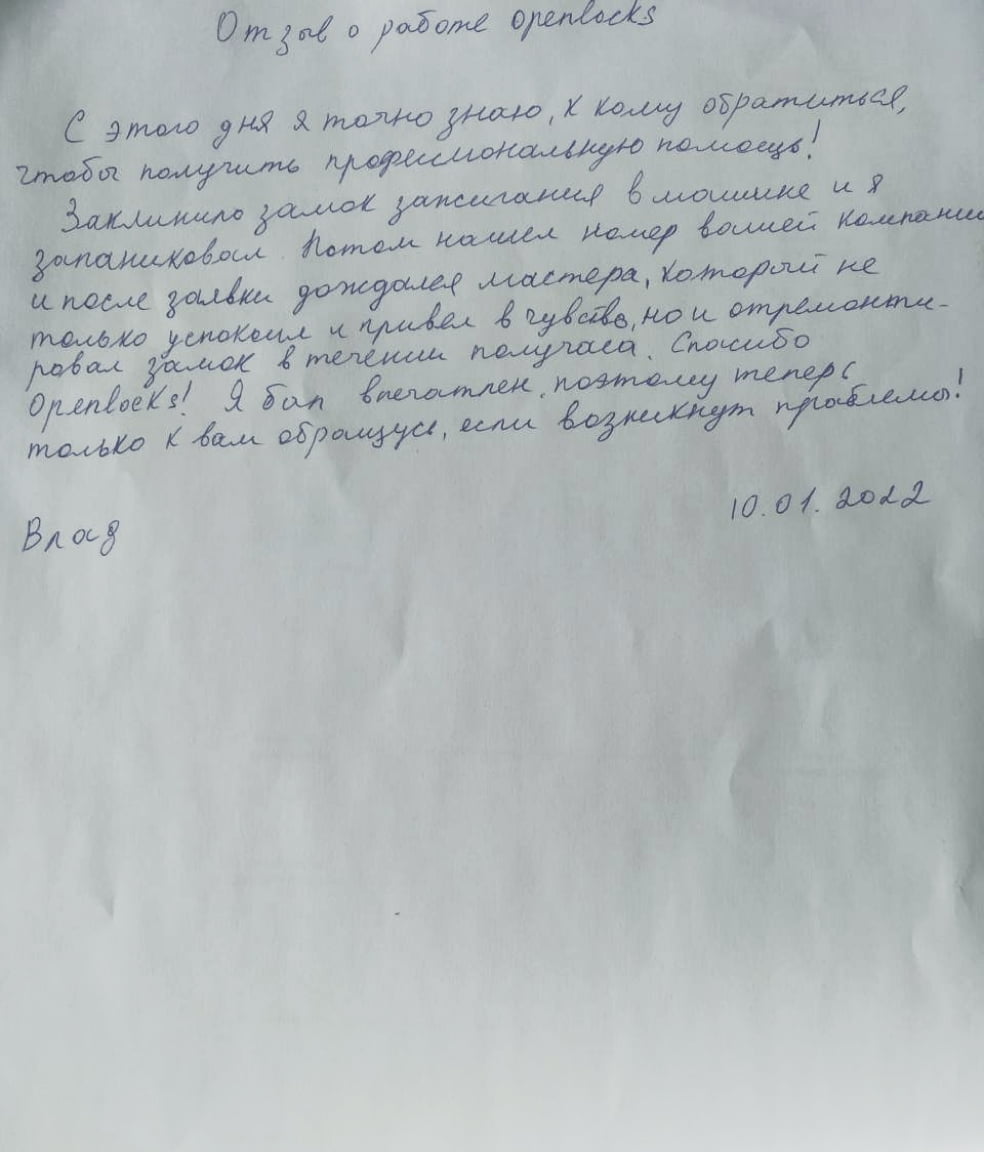 Отзыв о работе openlocks
С этого дня я точно знаю, к кому обратиться,
чтобы получить профессиональную помощь!
Заклинило замок зажигания в машине и я
запаниковал. Потом нашел номер вашей компании
и после заявки дождался мастера, который не
только успокоил и привел в чувство, но и отремонти-
ровал замок в течении получаса. Спасибо
Openlocks! Я был впечатлен, поэтому теперь
только к вам обращусь, если возникнут проблемы!
10.01.2022
Влад